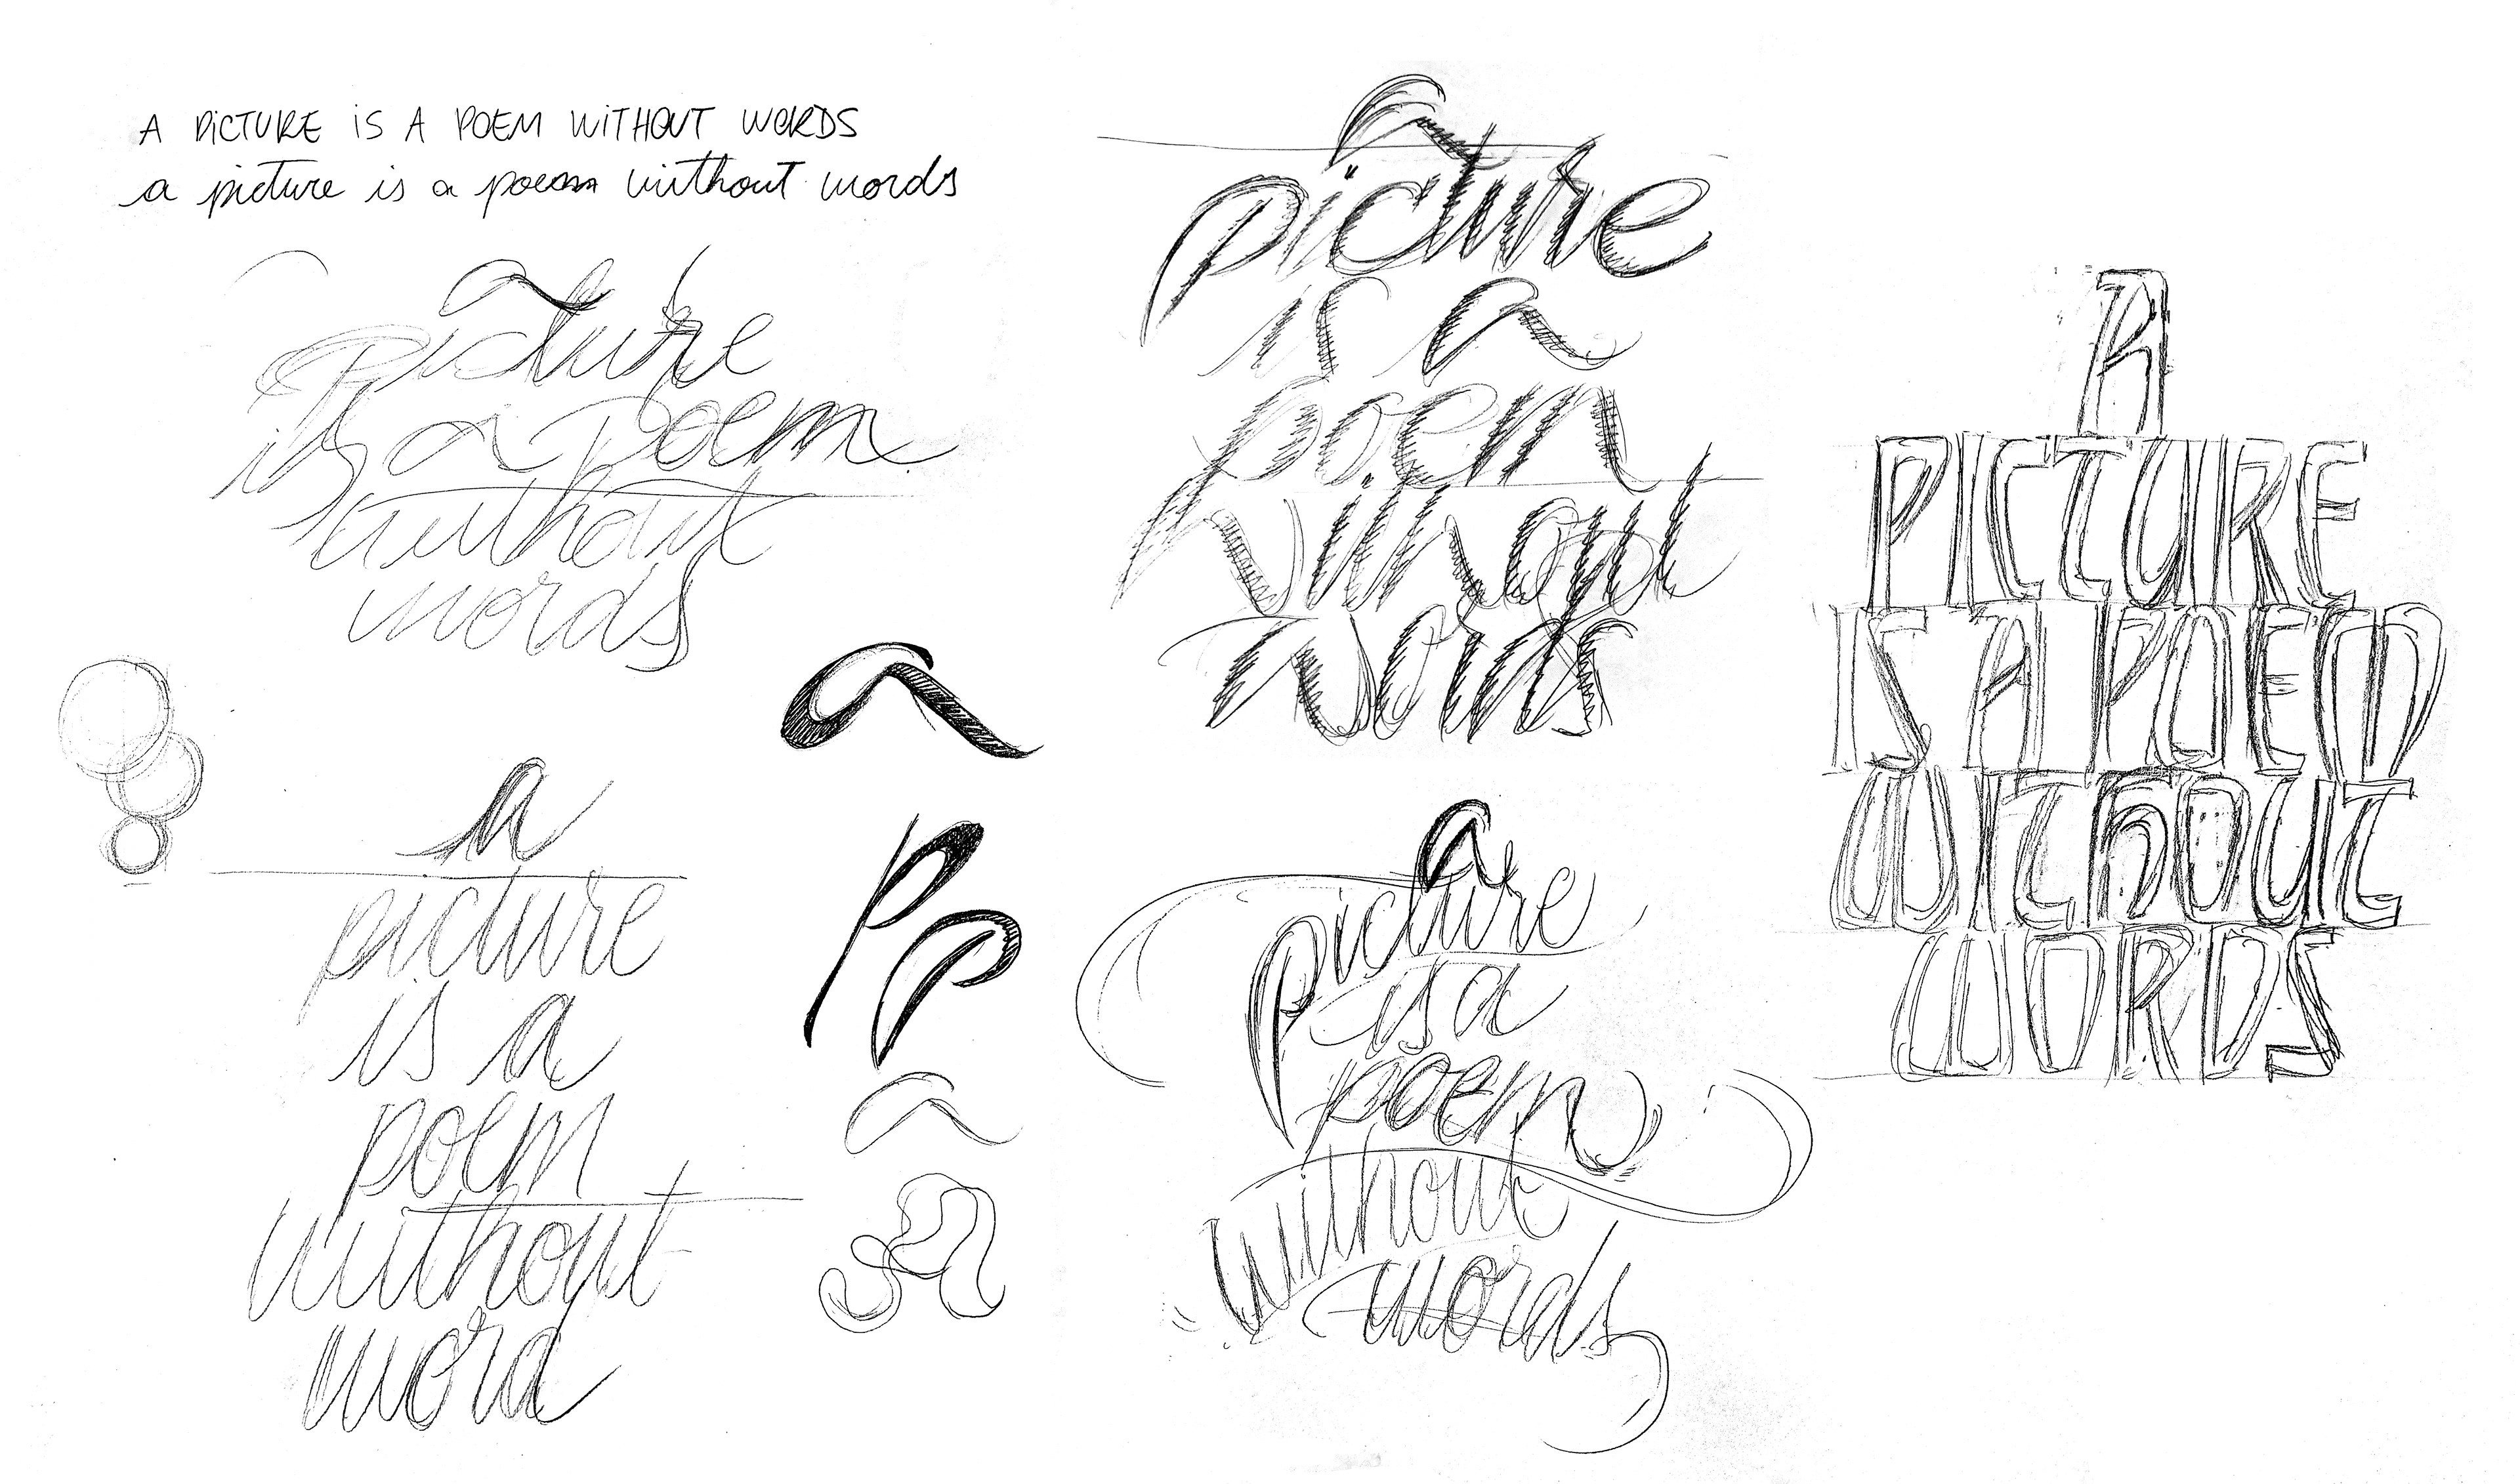 A PiCTURE iS A POEM WiTHOUT WORDS
a picture is a poem without words
a
picture
is a poem
without
words
a
picture
is a
poem
without
word
a
P p
a
a
picture
is a
poem
without
words
a
picture
is a
poem
without
words
A
PICTURE
IS A POEM
WITHOUT
WORDS